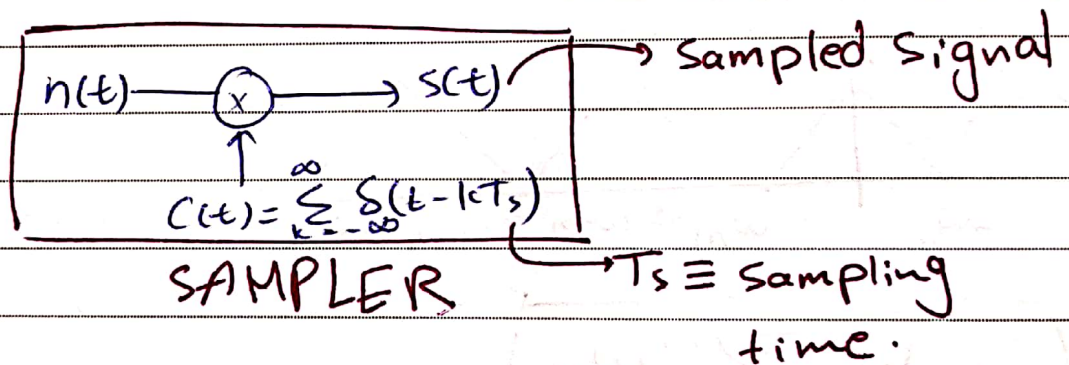 n(t) x → s(t) → Sampled Signal
C(t) = ∞ Σ k=-∞ δ(t-kTs)
SAMPLER → Ts ≡ Sampling
time.